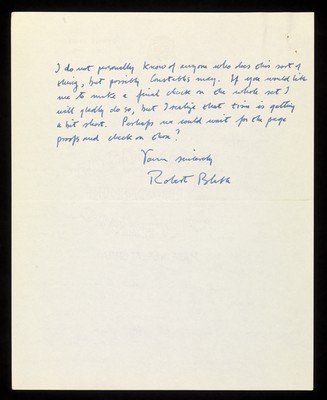 I do not personally know of anyone who does this sort of
thing, but possibly Constables may. If you would like
me to make a final check on the whole set I
will gladly do so, but I realize that time is getting
a bit short. Perhaps we could wait for the page
proofs and check on them?
Yours sincerely
Robert